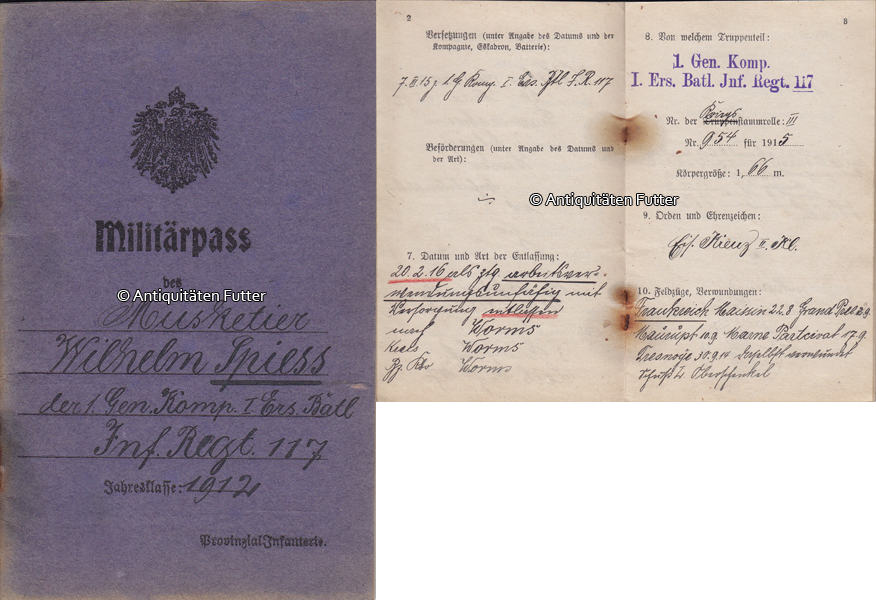 Militärpass
des
Musketier
Wilhelm Spiess
der 1. Gen. Komp. I. Ers. Batl
Inf. Regt. 117
Jahresklasse: 1912
Provinzial Infanterie.
© Antiquitäten Futter
2
Versetzungen (unter Angabe des Datums und der
Kompagnie, Eskadron, Batterie):
1 G Komp. I. Ers. Btl I. R. 117
Beförderungen (unter Angabe des Datums und
der Art):
7. Datum und Art der Entlassung:
20. 2. 16 als ztg arbeitsver-
wendungsunfähig mit
Versorgung entlassen
nach Worms
Kreis Worms
Bz. Kdo Worms
© Antiquitäten Futter
3
8. Von welchem Truppenteil:
1. Gen. Komp.
I. Ers. Batl. Jnf. Regt. 117
Nr. der Truppenstammrolle: III
Nr. 954 für 1915
Körpergröße: 1, 66 m.
9. Orden und Ehrenzeichen:
Eis. Kreuz II. Kl.
10. Feldzüge, Verwundungen:
Frankreich Maissin 22.8
Marne 17.9.
30.9.14 daselbst verwundet
Schuß L. Oberschenkel